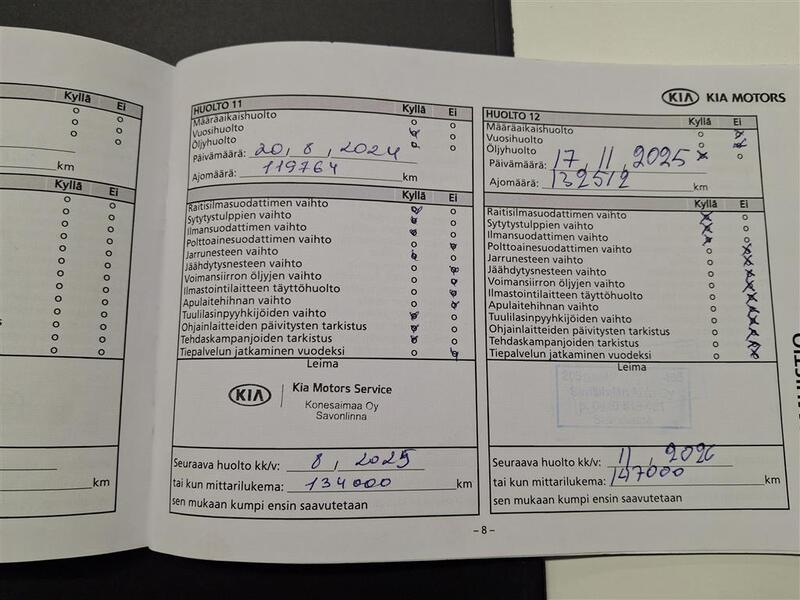 Kyllä Ei
km
Kyllä Ei
km
HUOLTO 11 Kyllä Ei
Määräaikaishuolto
Vuosihuolto
Öljyhuolto
Päivämäärä: 20, 8, 2024
Ajomäärä: 119764 km
Kyllä Ei
Raitisilmasuodattimen vaihto
Sytytystulppien vaihto
Ilmansuodattimen vaihto
Polttoainesuodattimen vaihto
Jarrunesteen vaihto
Jäähdytysnesteen vaihto
Voimansiirron öljyjen vaihto
Ilmastointilaitteen täyttöhuolto
Apulaitehihnan vaihto
Tuulilasinpyyhkijöiden vaihto
Ohjainlaitteiden päivitysten tarkistus
Tehdaskampanjoiden tarkistus
Tiepalvelun jatkaminen vuodeksi
Leima
KIA Kia Motors Service
Konesaimaa Oy
Savonlinna
Seuraava huolto kk/v: 8, 2025
tai kun mittarilukema: 134000 km
sen mukaan kumpi ensin saavutetaan
KIA KIA MOTORS
HUOLTO 12 Kyllä Ei
Määräaikaishuolto
Vuosihuolto
Öljyhuolto
Päivämäärä: 17, 11, 2025
Ajomäärä: 132512 km
Kyllä Ei
Raitisilmasuodattimen vaihto
Sytytystulppien vaihto
Ilmansuodattimen vaihto
Polttoainesuodattimen vaihto
Jarrunesteen vaihto
Jäähdytysnesteen vaihto
Voimansiirron öljyjen vaihto
Ilmastointilaitteen täyttöhuolto
Apulaitehihnan vaihto
Tuulilasinpyyhkijöiden vaihto
Ohjainlaitteiden päivitysten tarkistus
Tehdaskampanjoiden tarkistus
Tiepalvelun jatkaminen vuodeksi
Leima
Seuraava huolto kk/v: 11, 2026
tai kun mittarilukema: 147000 km
sen mukaan kumpi ensin saavutetaan
– 8 –